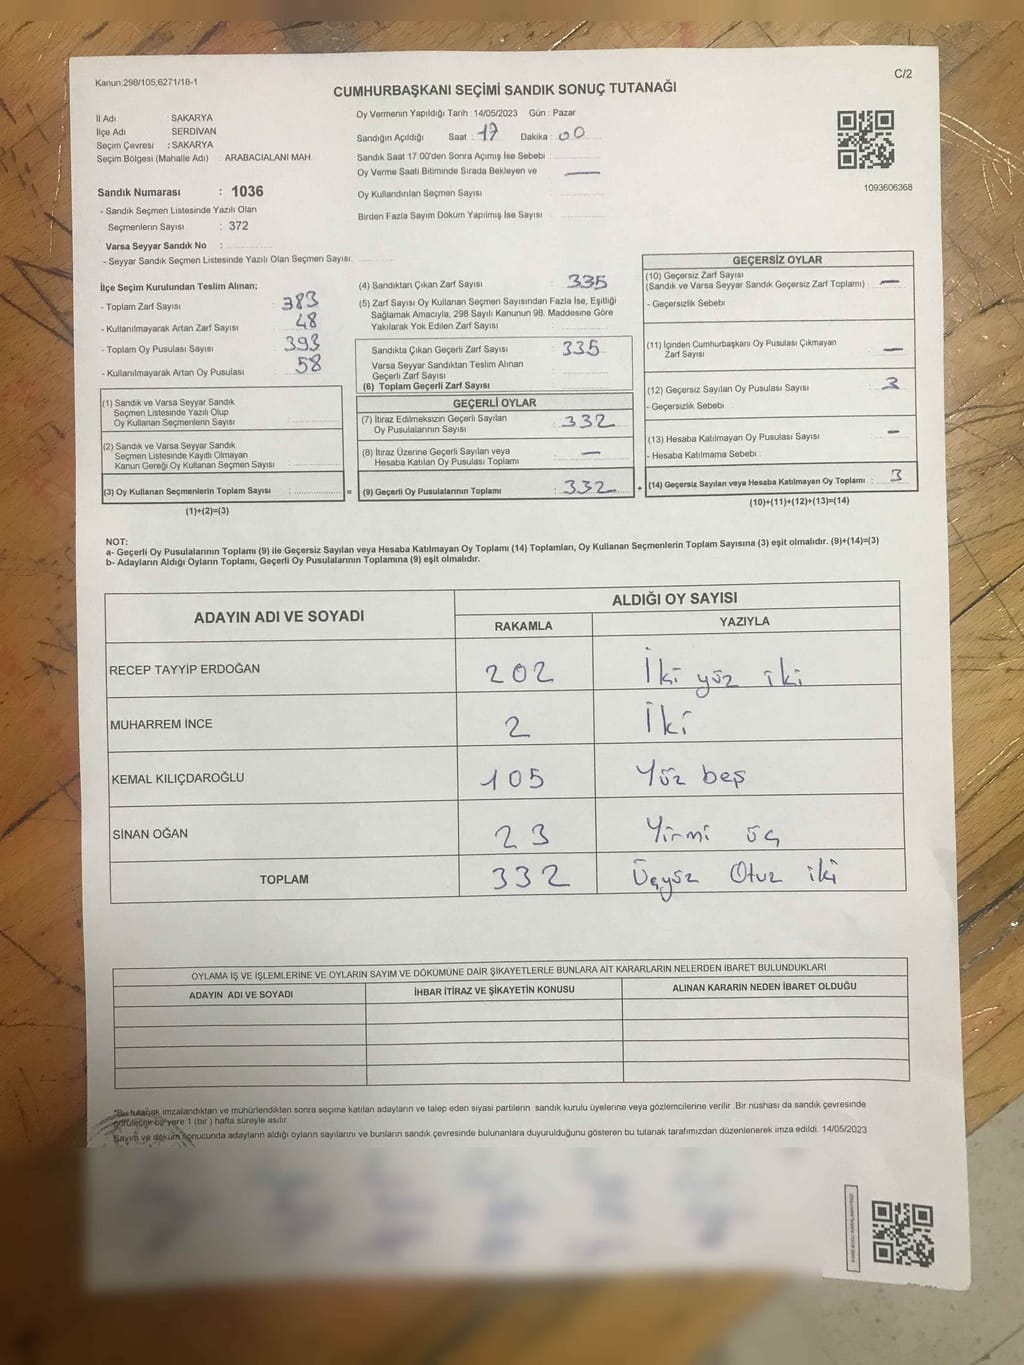 Kanun:298/105,6271/18-1
C/2
CUMHURBAŞKANI SEÇİMİ SANDIK SONUÇ TUTANAĞI
İl Adı SAKARYA
İlçe Adı SERDİVAN
Seçim Çevresi : SAKARYA
Seçim Bölgesi (Mahalle Adı) : ARABACIALANI MAH.
Sandık Numarası : 1036
- Sandık Seçmen Listesinde Yazılı Olan
Seçmenlerin Sayısı : 372
Varsa Seyyar Sandık No :
- Seyyar Sandık Seçmen Listesinde Yazılı Olan Seçmen Sayısı
Oy Vermenin Yapıldığı Tarih : 14/05/2023 Gün : Pazar
Sandığın Açıldığı Saat : 17 Dakika : 00
Sandık Saat 17:00'den Sonra Açımış İse Sebebi :
Oy Verme Saati Bitiminde Sırada Bekleyen ve —
Oy Kullandırılan Seçmen Sayısı
Birden Fazla Sayım Döküm Yapılmış İse Sayısı
1093606368
İlçe Seçim Kurulundan Teslim Alınan;
- Toplam Zarf Sayısı : 383
- Kullanılmayarak Artan Zarf Sayısı : 48
- Toplam Oy Pusulası Sayısı : 393
- Kullanılmayarak Artan Oy Pusulası : 58
(1) Sandık ve Varsa Seyyar Sandık
Seçmen Listesinde Yazılı Olup
Oy Kullanan Seçmenlerin Sayısı :
(2) Sandık ve Varsa Seyyar Sandık
Seçmen Listesinde Kayıtlı Olmayan
Kanun Gereği Oy Kullanan Seçmen Sayısı :
(3) Oy Kullanan Seçmenlerin Toplam Sayısı : =
(1)+(2)=(3)
(4) Sandıktan Çıkan Zarf Sayısı : 335
(5) Zarf Sayısı Oy Kullanan Seçmen Sayısından Fazla İse, Eşitliği
Sağlamak Amacıyla, 298 Sayılı Kanunun 98. Maddesine Göre
Yakılarak Yok Edilen Zarf Sayısı :
Sandıkta Çıkan Geçerli Zarf Sayısı : 335
Varsa Seyyar Sandıktan Teslim Alınan
Geçerli Zarf Sayısı :
(6) Toplam Geçerli Zarf Sayısı :
GEÇERLİ OYLAR
(7) İtiraz Edilmeksizin Geçerli Sayılan
Oy Pusulalarının Sayısı : 332
(8) İtiraz Üzerine Geçerli Sayılan veya
Hesaba Katılan Oy Pusulası Toplamı : —
(9) Geçerli Oy Pusulalarının Toplamı : 332 +
GEÇERSİZ OYLAR
(10) Geçersiz Zarf Sayısı
(Sandık ve Varsa Seyyar Sandık Geçersiz Zarf Toplamı) : —
- Geçersizlik Sebebi
(11) İçinden Cumhurbaşkanı Oy Pusulası Çıkmayan
Zarf Sayısı : —
(12) Geçersiz Sayılan Oy Pusulası Sayısı : 3
- Geçersizlik Sebebi :
(13) Hesaba Katılmayan Oy Pusulası Sayısı : —
- Hesaba Katılmama Sebebi :
(14) Geçersiz Sayılan veya Hesaba Katılmayan Oy Toplamı : 3
(10)+(11)+(12)+(13)=(14)
NOT:
a- Geçerli Oy Pusulalarının Toplamı (9) ile Geçersiz Sayılan veya Hesaba Katılmayan Oy Toplamı (14) Toplamları, Oy Kullanan Seçmenlerin Toplam Sayısına (3) eşit olmalıdır. (9)+(14)=(3)
b- Adayların Aldığı Oyların Toplamı, Geçerli Oy Pusulalarının Toplamına (9) eşit olmalıdır.
ADAYIN ADI VE SOYADI ALDIĞI OY SAYISI
RAKAMLA YAZIYLA
RECEP TAYYİP ERDOĞAN 202 İki yüz iki
MUHARREM İNCE 2 İki
KEMAL KILIÇDAROĞLU 105 Yüz beş
SİNAN OĞAN 23 Yirmi üç
TOPLAM 332 Üçyüz Otuz iki
OYLAMA İŞ VE İŞLEMLERİNE VE OYLARIN SAYIM VE DÖKÜMÜNE DAİR ŞİKAYETLERLE BUNLARA AİT KARARLARIN NELERDEN İBARET BULUNDUKLARI
ADAYIN ADI VE SOYADI İHBAR İTİRAZ VE ŞİKAYETİN KONUSU ALINAN KARARIN NEDEN İBARET OLDUĞU
*Bu tutanak imzalandıktan ve mühürlendikten sonra seçime katılan adayların ve talep eden siyasi partilerin sandık kurulu üyelerine veya gözlemcilerine verilir .Bir nüshası da sandık çevresinde
görülecek bir yere 1 (bir ) hafta süreyle asılır.
Sayım ve döküm sonucunda adayların aldığı oyların sayılarını ve bunların sandık çevresinde bulunanlara duyurulduğunu gösteren bu tutanak tarafımızdan düzenlenerek imza edildi. 14/05/2023